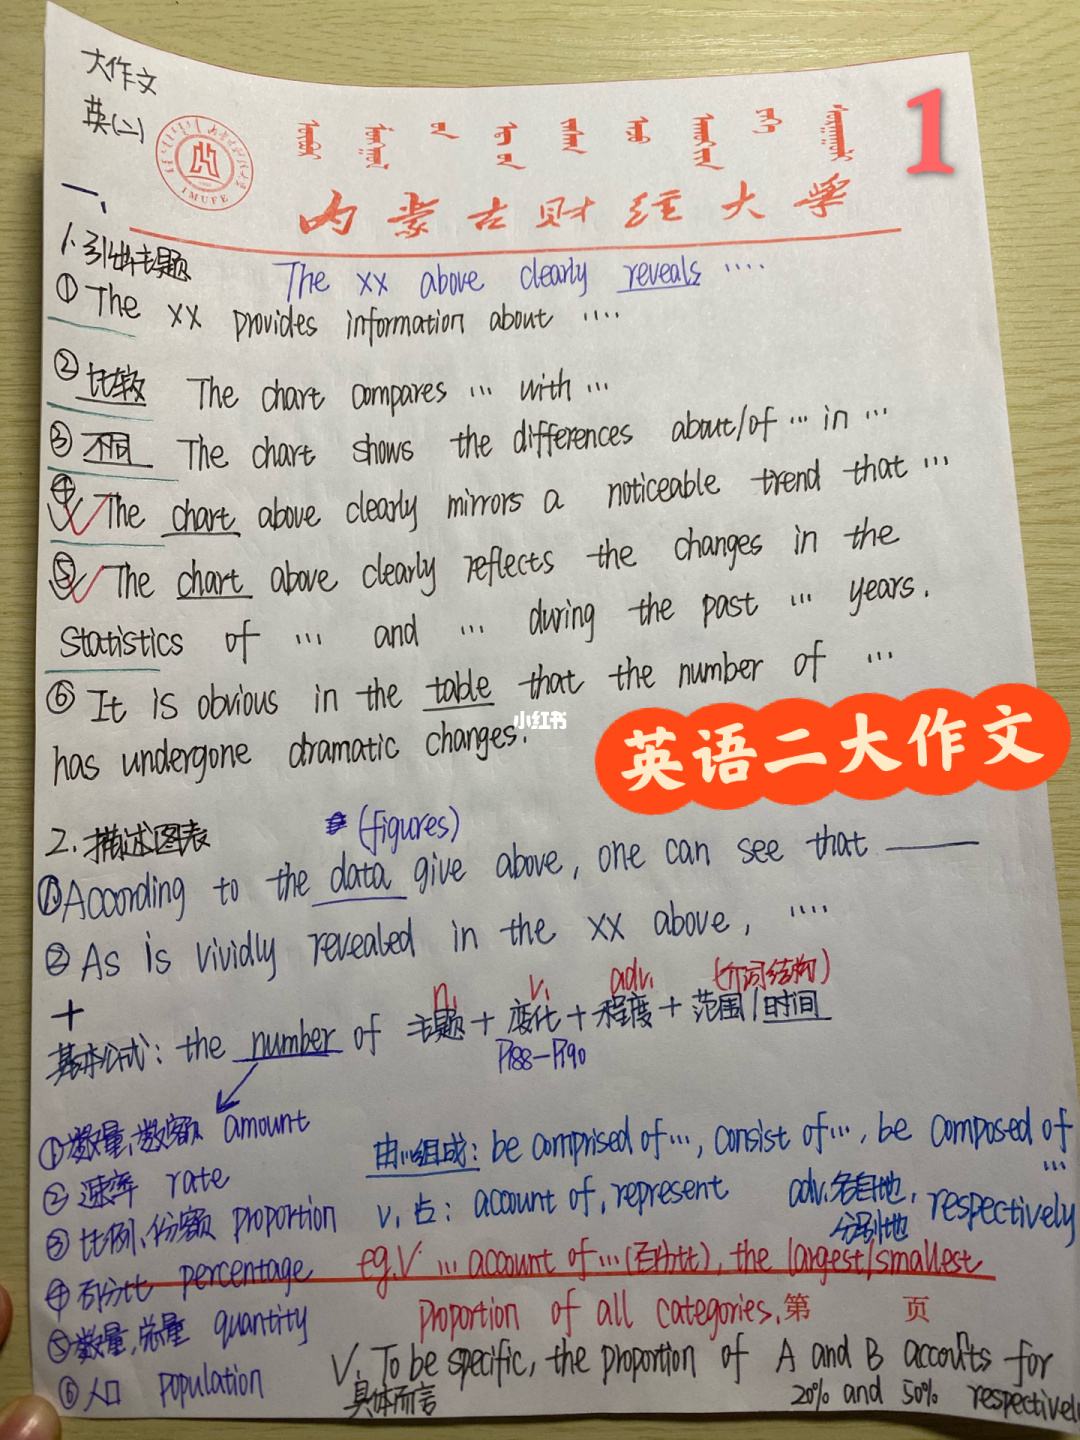 大作文
英(二)
1
IMUFE
内蒙古财经大学
一、
1.引出主题
The xx above clearly reveals ····
① The xx provides information about ····
② 比较 The chart compares ··· with ···
③ 不同 The chart shows the differences about/of ··· in ···
④ The chart above clearly mirrors a noticeable trend that ···
⑤ The chart above clearly reflects the changes in the
statistics of ··· and ··· during the past ··· years.
⑥ It is obvious in the table that the number of ···
has undergone dramatic changes.
小红书
英语二大作文
2.描述图表
(figures)
① According to the data give above, one can see that ——
② As is vividly revealed in the xx above, ····
n. v. adv. (介词结构)
+
基本公式: the number of 主题 + 变化 + 程度 + 范围/时间
P188-P190
①数量、数额 amount
② 速率 rate
③ 比例、份额 proportion
④ 百分比 percentage
⑤数量,总量 quantity
⑥人口 population
由···组成: be comprised of ···, consist of ···, be composed of ···
v. 占: account of, represent adv.各自地, 分别地 respectively
eg. V ··· account of ···(百分比), the largest/smallest
proportion of all categories.
第 页
V. To be specific, the proportion of A and B accounts for
具体而言 20% and 50% respectively